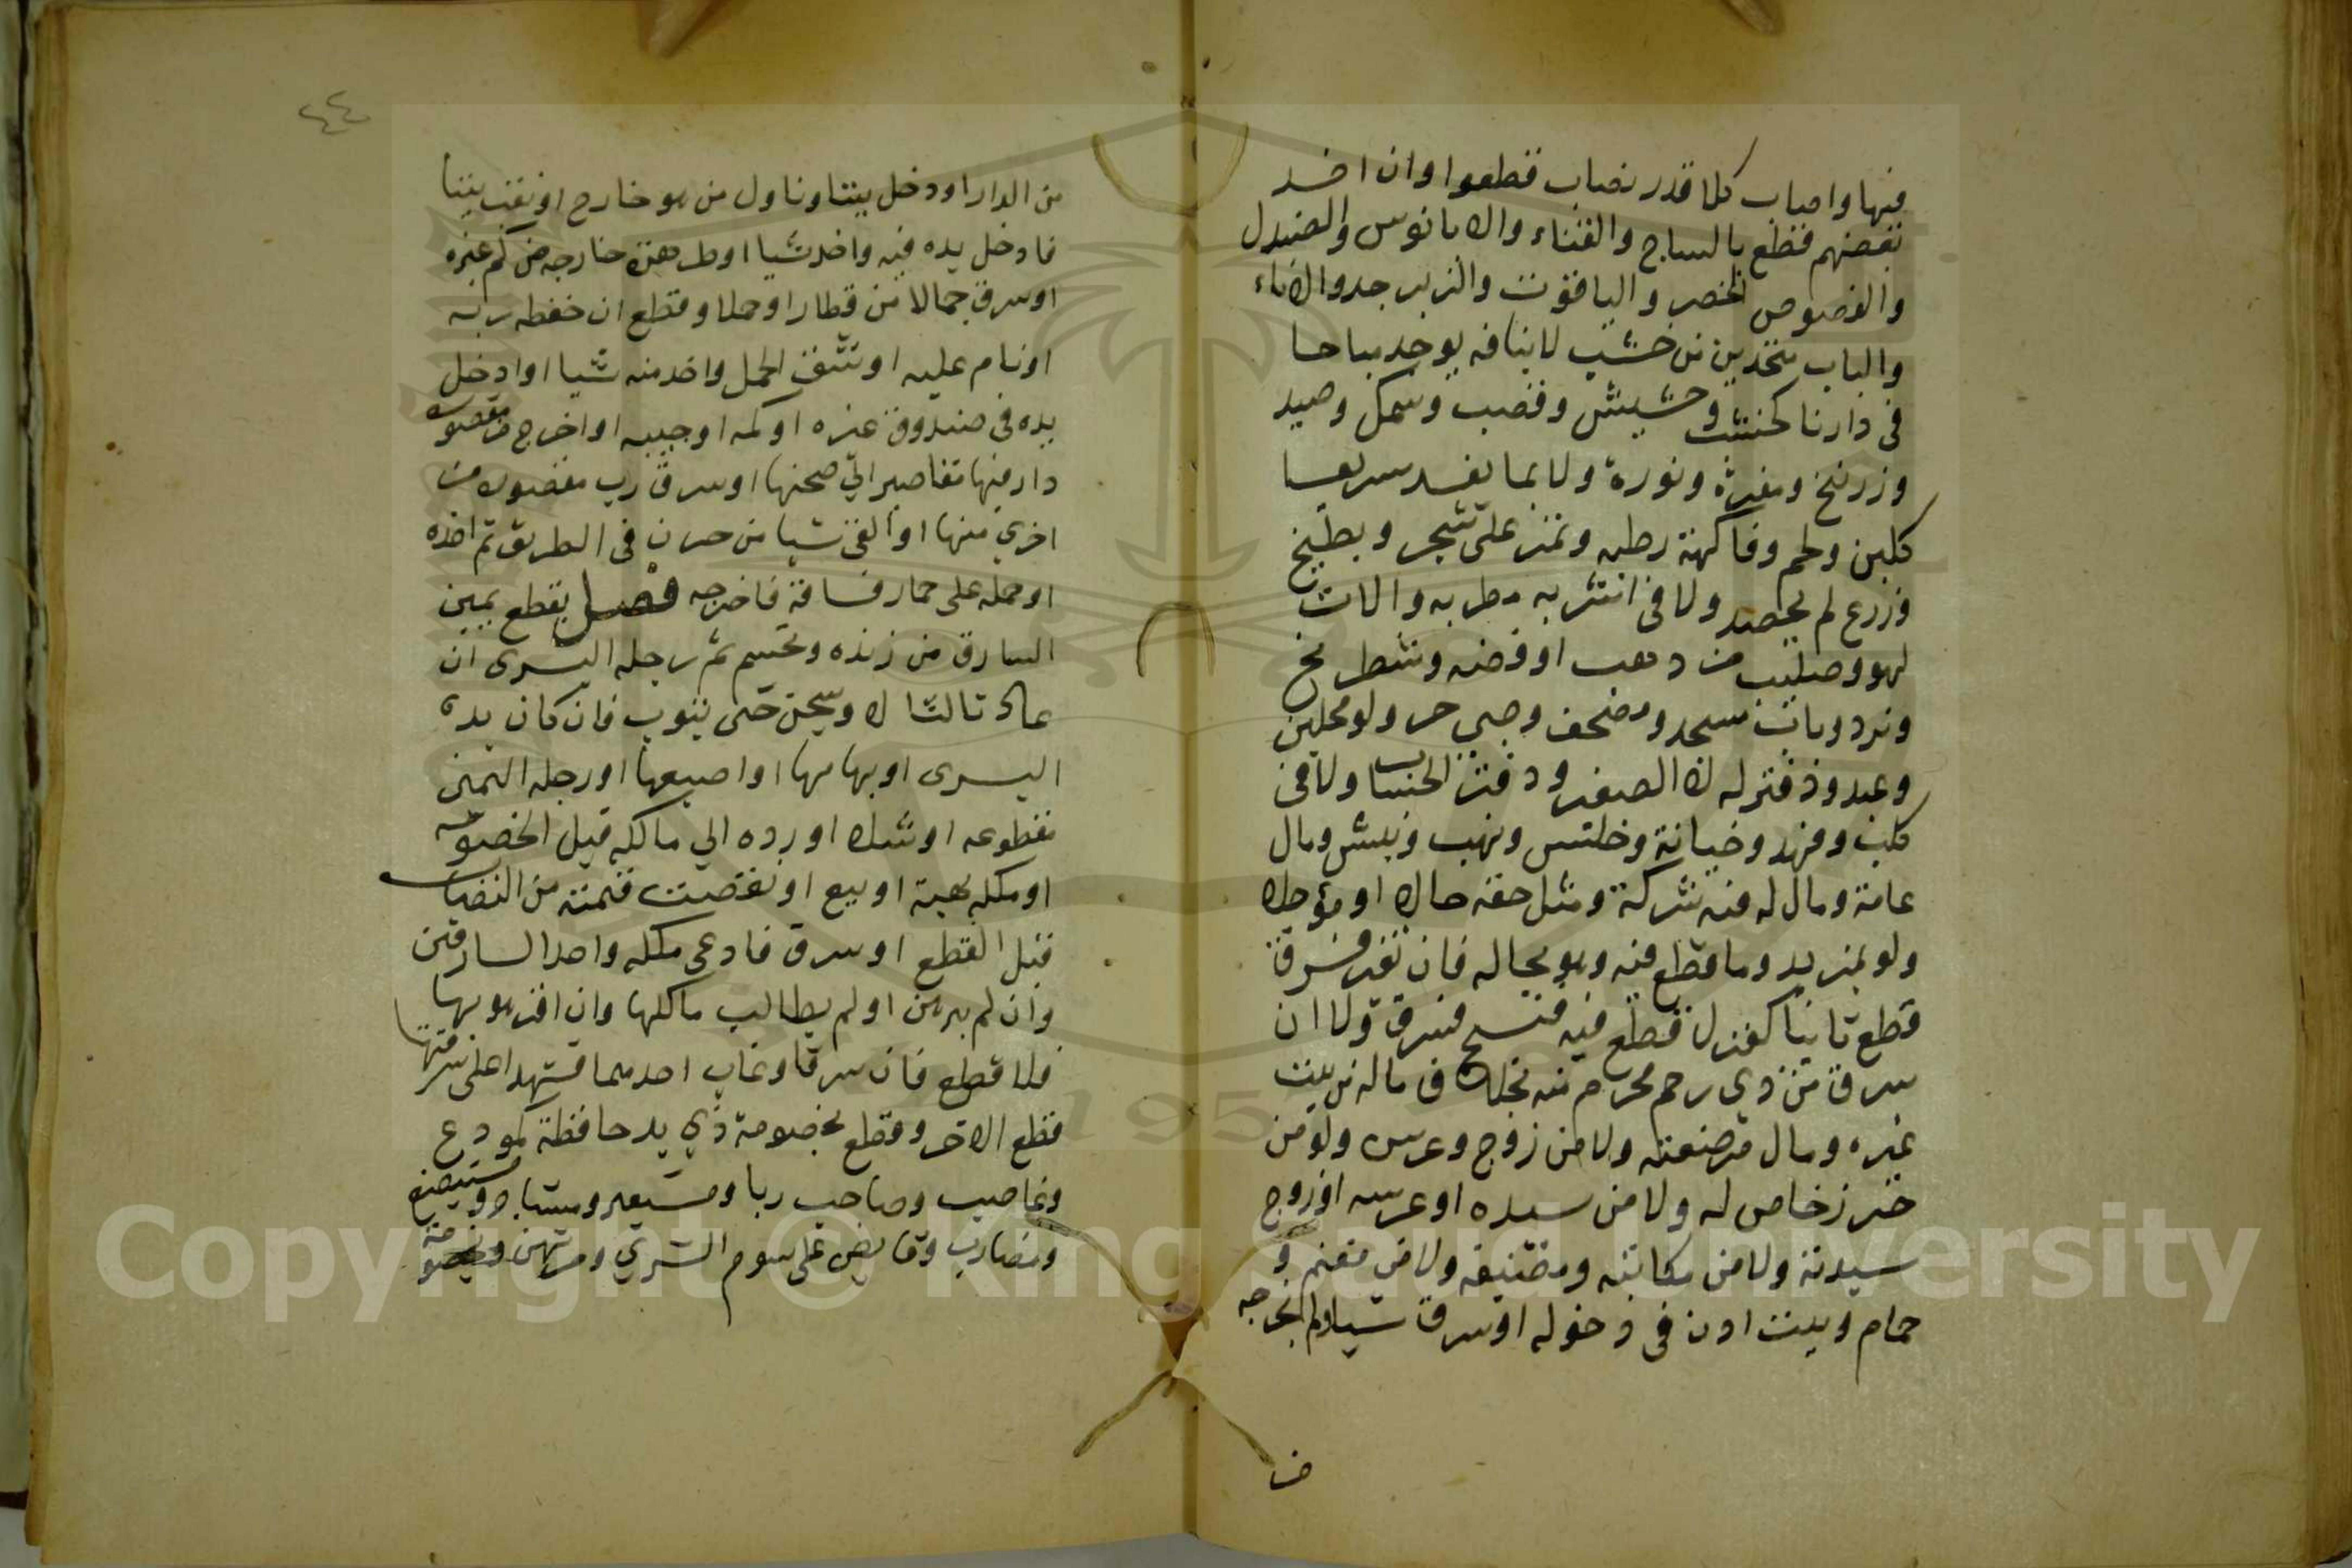 فيها واصاب كلا قدر نصاب قطعوا وان اخد
بعضهم فقطع بالساج والقناء والابانوس والصندل
والفصوص الخضر والياقوت والزبرجد والاناء
والباب متخدين من خشب لا بتافه يوجد مباحا
فى دارنا كخشب وحشيش وقصب وسمك وصيد
وزرنيخ ومغرة ونورة ولا بما يفسد سريعا
كلبن ولحم وفاكهة رطبه وتمر على شجر وبطيخ
وزرع لم يحصد ولا فى اشربه مطربه والات
لهو وصليب من دهب او فضه وشطرنج
ونرد وباب مسجد ومصحف وصبى حر ولو محلين
وعبد ودفتر له لا الصغير ودفتر الحساب ولا فى
كلب وفهد وخيانة وخلس ونهب ونبش ومال
عامة ومال له فيه شركة ومثل حقه حالا او مؤجلا
ولو بمزيد وما قطع فيه وهو بحاله فان تغير فسرق
قطع ثانيا كغزل قطع فيه فنسج فسرق ولا ان
سرق من دى رحم محرم منه بخلاف ماله من بيت
غيره ومال مرضعته ولا من زوج وعرس ولو من
حرز خاص له ولا من سيده او عرسه او زوج
سيدته ولا من مكاتبه ومضيفه ولا من مغنم و
حمام وبيت ادن فى دخوله او سرق شيا ولم يخرجه
ف
٤٤
من الدار او دخل بيتا وناول من هو خارج او نقب بيتا
فادخل يده فيه واخد شيا او طر صرة خارجه من كم غيره
او سرق جملا من قطار او حملا وقطع ان حفظه ربه
او نام عليه او شق الحمل واخد منه شيا او ادخل
يده فى صندوق غيره او كمه او جيبه او اخرج من مقصوره
دار فيها مقاصير الى صحنها او سرق رب مقصوره من
اخرى منها او القى شيا من حرز فى الطريق ثم اخذه
او حمله على حمار فساقه فاخرجه فصل يقطع يمين
السارق من زنده وتحسم ثم رجله اليسرى ان
عاد ثالثا لا وسجن حتى يتوب فان كان يده
اليسرى او بهامها او اصبعها او رجله اليمين
مقطوعه او شلا او رده الى مالكه قبل الخصومه
او ملكه بهبة او بيع او نقصت قيمته من النصاب
قبل القطع او سرق فادعى ملكه واحد السارقين
وان لم يبرهن او لم يطالب مالكها وان اقر هو بها
فلا قطع فان سرقا وغاب احدهما فشهدا على سرقتها
قطع الاخر وقطع بخصومة ذي يد حافظة كمودع
وغاصب وصاحب ربا ومستعير ومستاجر ومستبضع
ومضارب وقابض على سوم الشرى ومرتهن وبخصومة